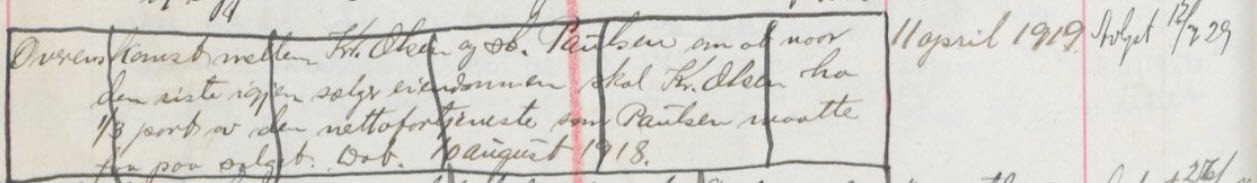 Overenskomst mellem Kr. Olsen og ob. Paulsen om at naar 11 april 1919. Solgt 12/7 29
den siste igjen sælger eiendommen skal Kr. Olsen ha
1/3 part av den nettofortjeneste som Paulsen maatte
faa paa salget. Dat. 10 august 1918.